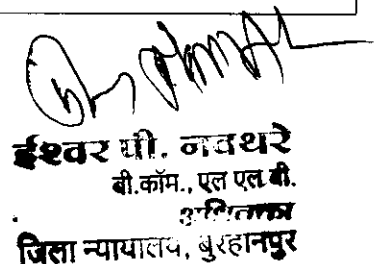 ईश्वर पी. नवथरे
बी.कॉम., एल एल.बी.
अधिवक्ता
जिला न्यायालय, बुरहानपुर